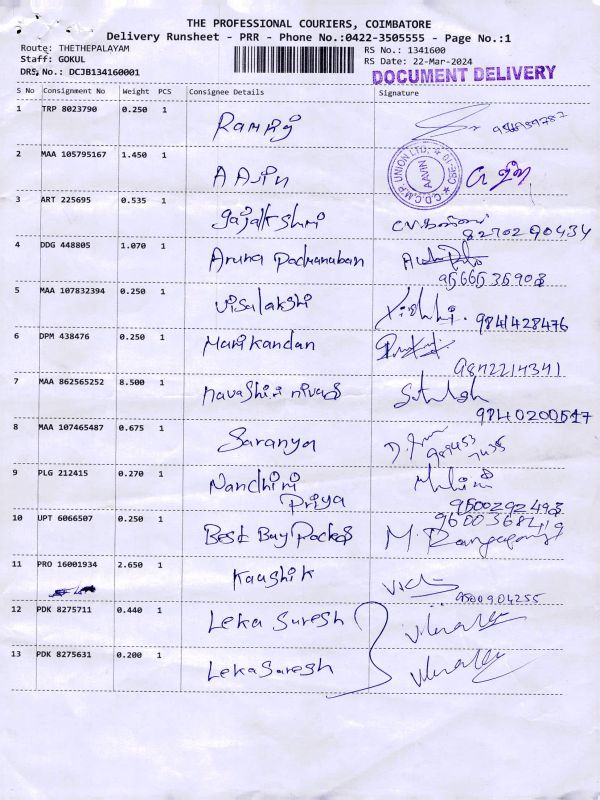 THE PROFESSIONAL COURIERS, COIMBATORE
Delivery Runsheet - PRR - Phone No.:0422-3505555 - Page No.:1
Route: THETHEPALAYAM RS No.: 1341600
Staff: GOKUL RS Date: 22-Mar-2024
DRS No.: DCJB134160001 DOCUMENT DELIVERY
S No Consignment No Weight PCS Consignee Details Signature
1 TRP 8023790 0.250 1 Ramraj
2 MAA 105795167 1.450 1 AAjin C.D.C.M.P UNION LTD AAVIN CBE-10
3 ART 225695 0.535 1 gajalakshmi
8270290434
4 DDG 448805 1.070 1 Aruna Padmanaban
9566535903
5 MAA 107832394 0.250 1 Visalakshi 9841428476
6 DPM 438476 0.250 1 Marikandan
9842214341
7 MAA 862565252 8.500 1 navashini nivas
9840200517
8 MAA 107465487 0.675 1 Saranya
9 PLG 212415 0.270 1 Nandhini
Priya 9500292493
10 UPT 6066507 0.250 1 Best Buy Packs
11 PRO 16001934 2.650 1 Kaushik
9500904255
12 PDK 8275711 0.440 1 Leka Suresh
13 PDK 8275631 0.200 1 Leka Suresh